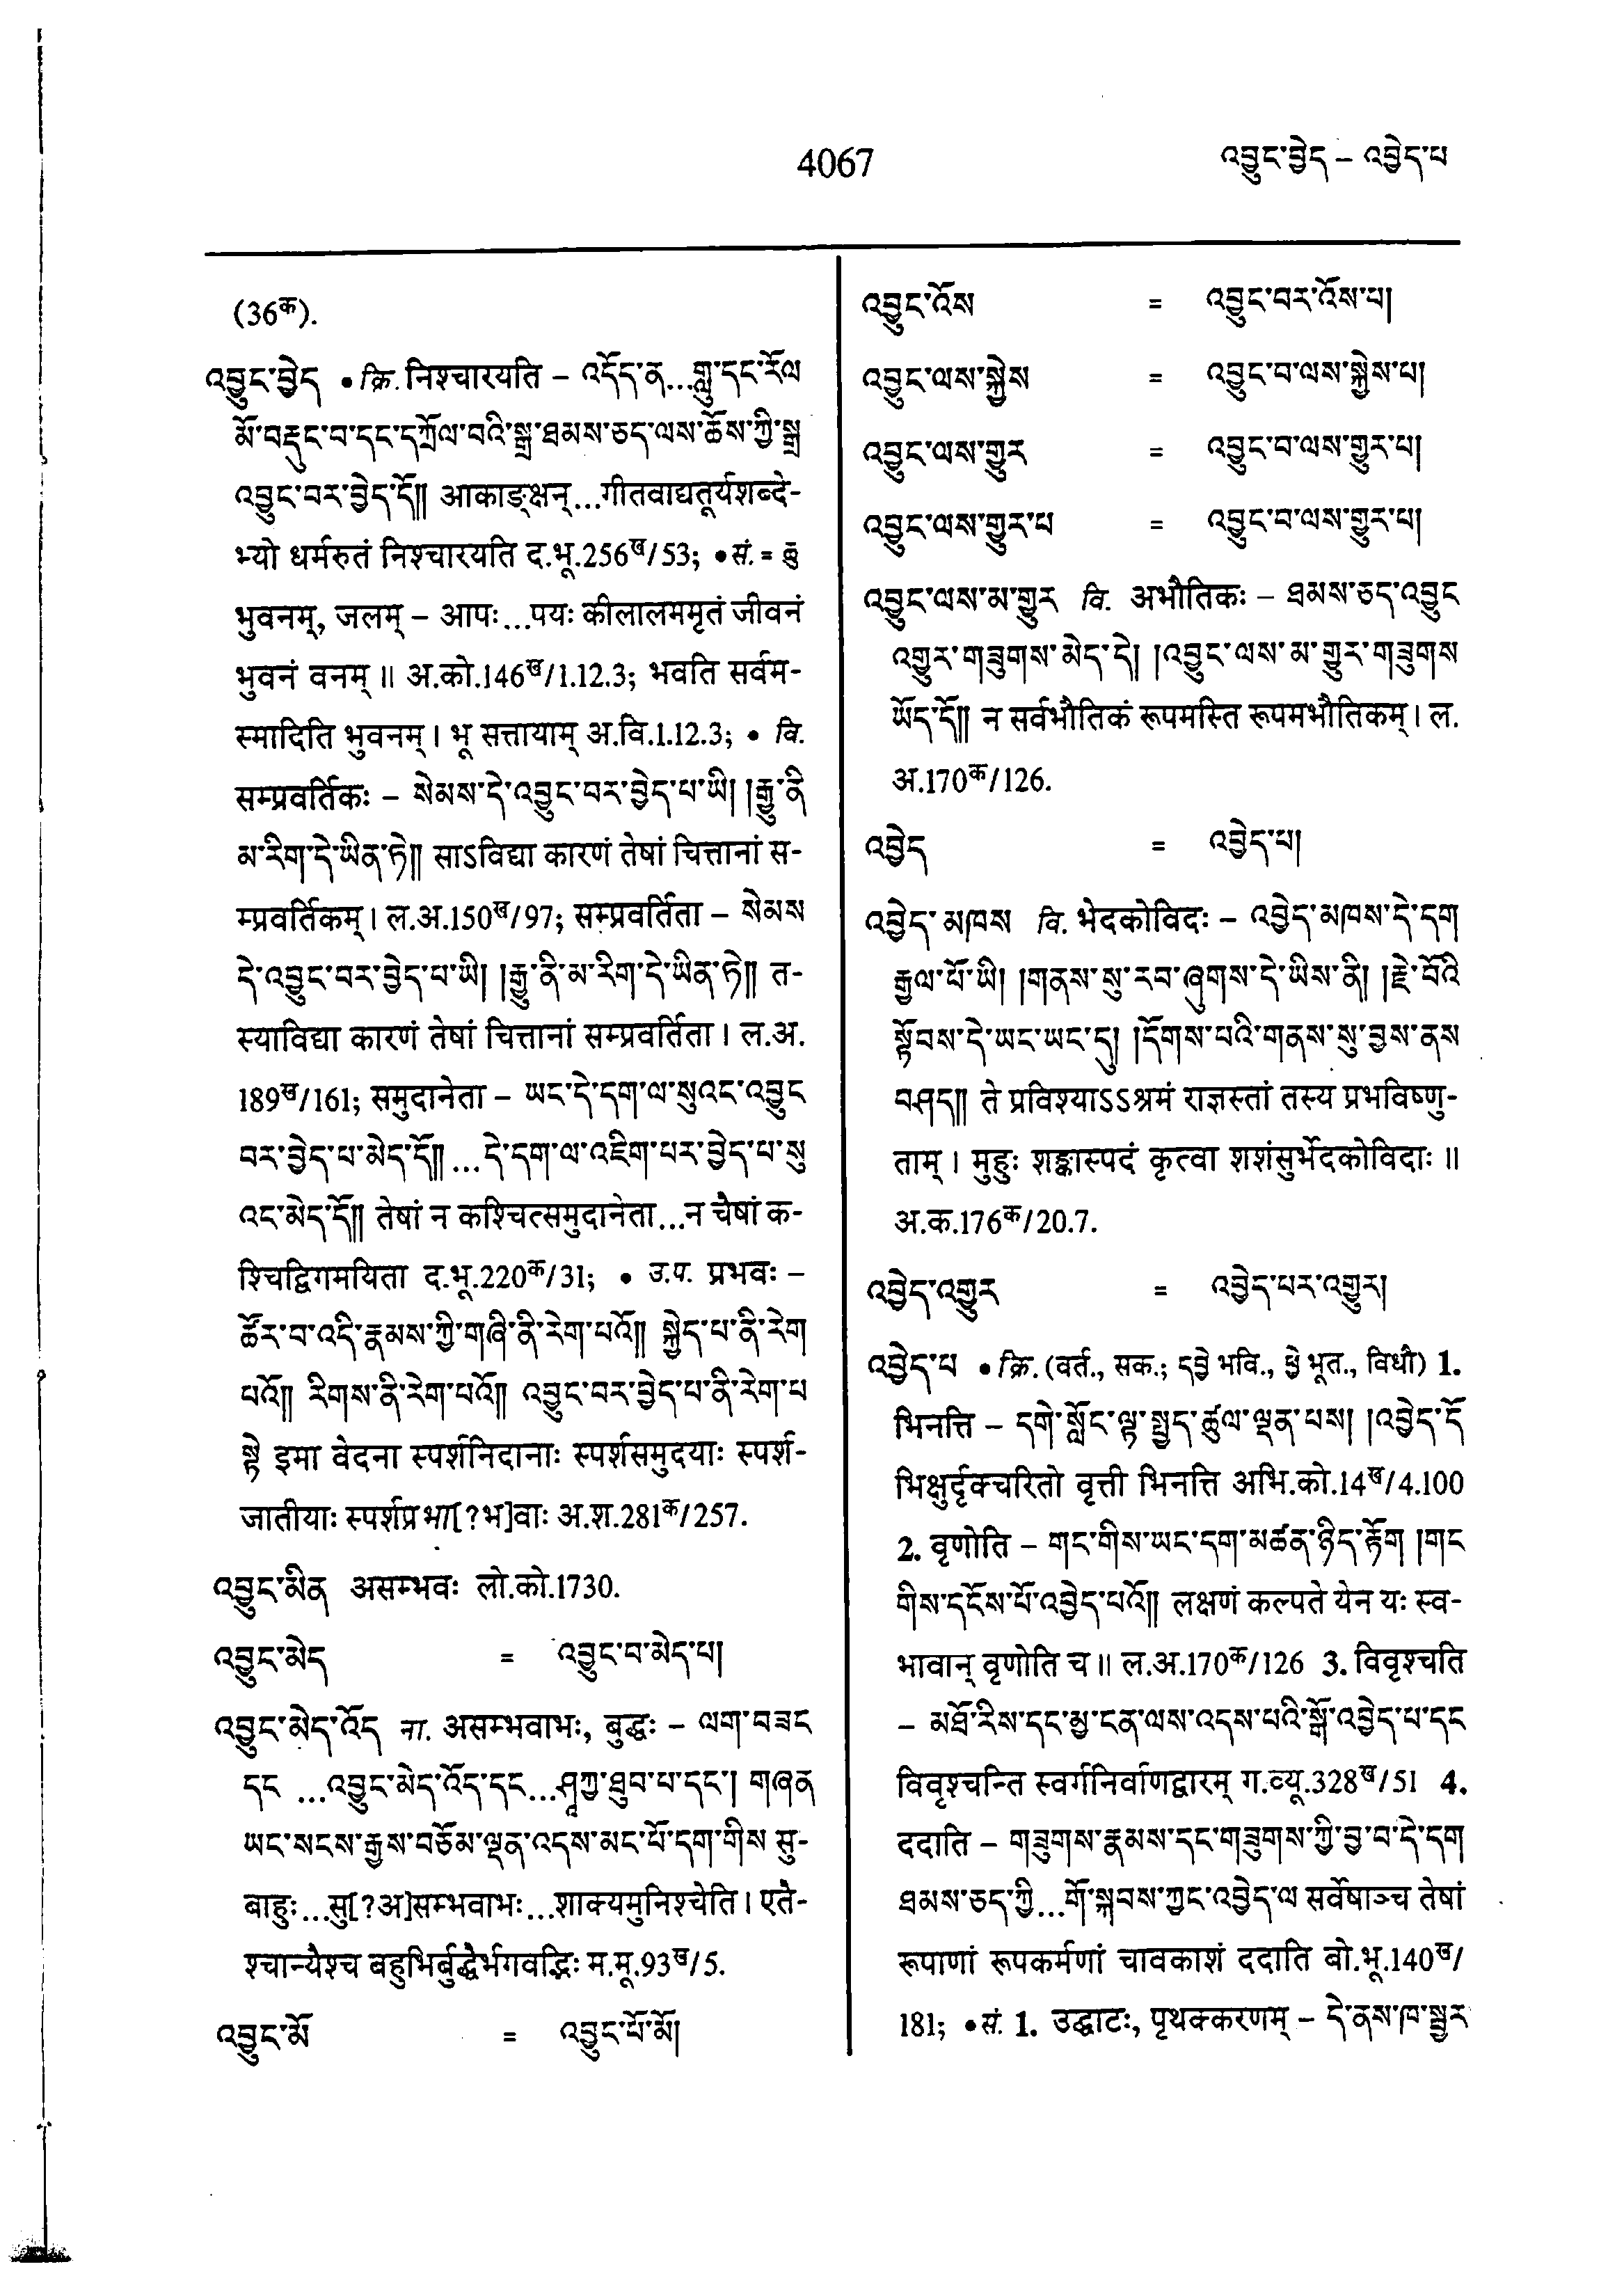 4067
འབྱུང་བྱེད – འབྱེད་པ
(36क).
འབྱུང་བྱེད • क्रि. निश्चारयति – འདོད་ན...གླུ་དང་རོལ
མོ་བརྡུང་བ་དང་དཀྲོལ་བའི་སྒྲ་ཐམས་ཅད་ལས་ཆོས་ཀྱི་སྒྲ
འབྱུང་བར་བྱེད་དོ།། आकाङ्क्षन्...गीतवाद्यतूर्यशब्दे-
भ्यो धर्मरुतं निश्चारयति द.भू.256ख/53; • सं. = ཆུ
भुवनम्, जलम् – आपः...पयः कीलालममृतं जीवनं
भुवनं वनम् ॥ अ.को.146ख/1.12.3; भवति सर्वम-
स्मादिति भुवनम् । भू सत्तायाम् अ.वि.1.12.3; • वि.
सम्प्रवर्तिकः – སེམས་དེ་འབྱུང་བར་བྱེད་པ་ཡི། །རྒྱུ་ནི
མ་རིག་དེ་ཡིན་ཏེ།། साऽविद्या कारणं तेषां चित्तानां स-
म्प्रवर्तिकम् । ल.अ.150ख/97; सम्प्रवर्तिता – སེམས
དེ་འབྱུང་བར་བྱེད་པ་ཡི། །རྒྱུ་ནི་མ་རིག་དེ་ཡིན་ཏེ།། त-
स्याविद्या कारणं तेषां चित्तानां सम्प्रवर्तिता । ल.अ.
189ख/161; समुदानेता – ཡང་དེ་དག་ལ་སུའང་འབྱུང
བར་བྱེད་པ་མེད་དོ།། ...དེ་དག་ལ་འཇིག་པར་བྱེད་པ་སུ
འང་མེད་དོ།། तेषां न कश्चित्समुदानेता...न चैषां क-
श्चिद्विगमयिता द.भू.220क/31; • उ.प. प्रभवः –
ཚོར་བ་འདི་རྣམས་ཀྱི་གཞི་ནི་རེག་པའོ།། སྐྱེད་པ་ནི་རེག
པའོ།། རིགས་ནི་རེག་པའོ།། འབྱུང་བར་བྱེད་པ་ནི་རེག་པ
སྟེ इमा वेदना स्पर्शनिदानाः स्पर्शसमुदयाः स्पर्श-
जातीयाः स्पर्शप्रभा[?भ]वाः अ.श.281क/257.
འབྱུང་མིན असम्भवः लो.को.1730.
འབྱུང་མེད = འབྱུང་བ་མེད་པ།
འབྱུང་མེད་འོད ना. असम्भवाभः, बुद्धः – ལག་བཟང
དང ...འབྱུང་མེད་འོད་དང...ཤཱཀྱ་ཐུབ་པ་དང་། གཞན
ཡང་སངས་རྒྱས་བཅོམ་ལྡན་འདས་མང་པོ་དག་གིས सु-
बाहुः...सु[?अ]सम्भवाभः...शाक्यमुनिश्चेति । एतै-
श्चान्यैश्च बहुभिर्बुद्धैर्भगवद्भिः म.मू.93ख/5.
འབྱུང་མོ = འབྱུང་པོ་མོ།
འབྱུང་འོས = འབྱུང་བར་འོས་པ།
འབྱུང་ལས་སྐྱེས = འབྱུང་བ་ལས་སྐྱེས་པ།
འབྱུང་ལས་གྱུར = འབྱུང་བ་ལས་གྱུར་པ།
འབྱུང་ལས་གྱུར་པ = འབྱུང་བ་ལས་གྱུར་པ།
འབྱུང་ལས་མ་གྱུར वि. अभौतिकः – ཐམས་ཅད་འབྱུང
འགྱུར་གཟུགས་མེད་དེ། །འབྱུང་ལས་མ་གྱུར་གཟུགས
ཡོད་དོ།། न सर्वभौतिकं रूपमस्ति रूपमभौतिकम् । ल.
अ.170क/126.
འབྱེད = འབྱེད་པ།
འབྱེད་མཁས वि. भेदकोविदः – འབྱེད་མཁས་དེ་དག
རྒྱལ་པོ་ཡི། །གནས་སུ་རབ་ཞུགས་དེ་ཡིས་ནི། །རྗེ་བོའི
སྟོབས་དེ་ཡང་ཡང་དུ། །དོགས་པའི་གནས་སུ་བྱས་ནས
བཤད།། ते प्रविश्याऽऽश्रमं राज्ञस्तां तस्य प्रभविष्णु-
ताम् । मुहुः शङ्कास्पदं कृत्वा शशंसुर्भेदकोविदाः ॥
अ.क.176क/20.7.
འབྱེད་འགྱུར = འབྱེད་པར་འགྱུར།
འབྱེད་པ • क्रि. (वर्त., सक.; དབྱེ भवि., ཕྱེ भूत., विधौ) 1.
भिनत्ति – དགེ་སློང་ལྟ་སྤྱད་ཚུལ་ལྡན་པས། །འབྱེད་དོ
भिक्षुर्दृक्चरितो वृत्ती भिनत्ति अभि.को.14ख/4.100
2. वृणोति – གང་གིས་ཡང་དག་མཚན་ཉིད་རྟོག །གང
གིས་དངོས་པོ་འབྱེད་པའོ།། लक्षणं कल्पते येन यः स्व-
भावान् वृणोति च ॥ ल.अ.170क/126 3. विवृश्चति
– མཐོ་རིས་དང་མྱ་ངན་ལས་འདས་པའི་སྒོ་འབྱེད་པ་དང
विवृश्चन्ति स्वर्गनिर्वाणद्वारम् ग.व्यू.328ख/51 4.
ददाति – གཟུགས་རྣམས་དང་གཟུགས་ཀྱི་བྱ་བ་དེ་དག
ཐམས་ཅད་ཀྱི...གོ་སྐབས་ཀྱང་འབྱེད་ལ सर्वेषाञ्च तेषां
रूपाणां रूपकर्मणां चावकाशं ददाति बो.भू.140ख/
181; • सं. 1. उद्घाटः, पृथक्करणम् – དེ་ནས་ཁ་སྦྱར